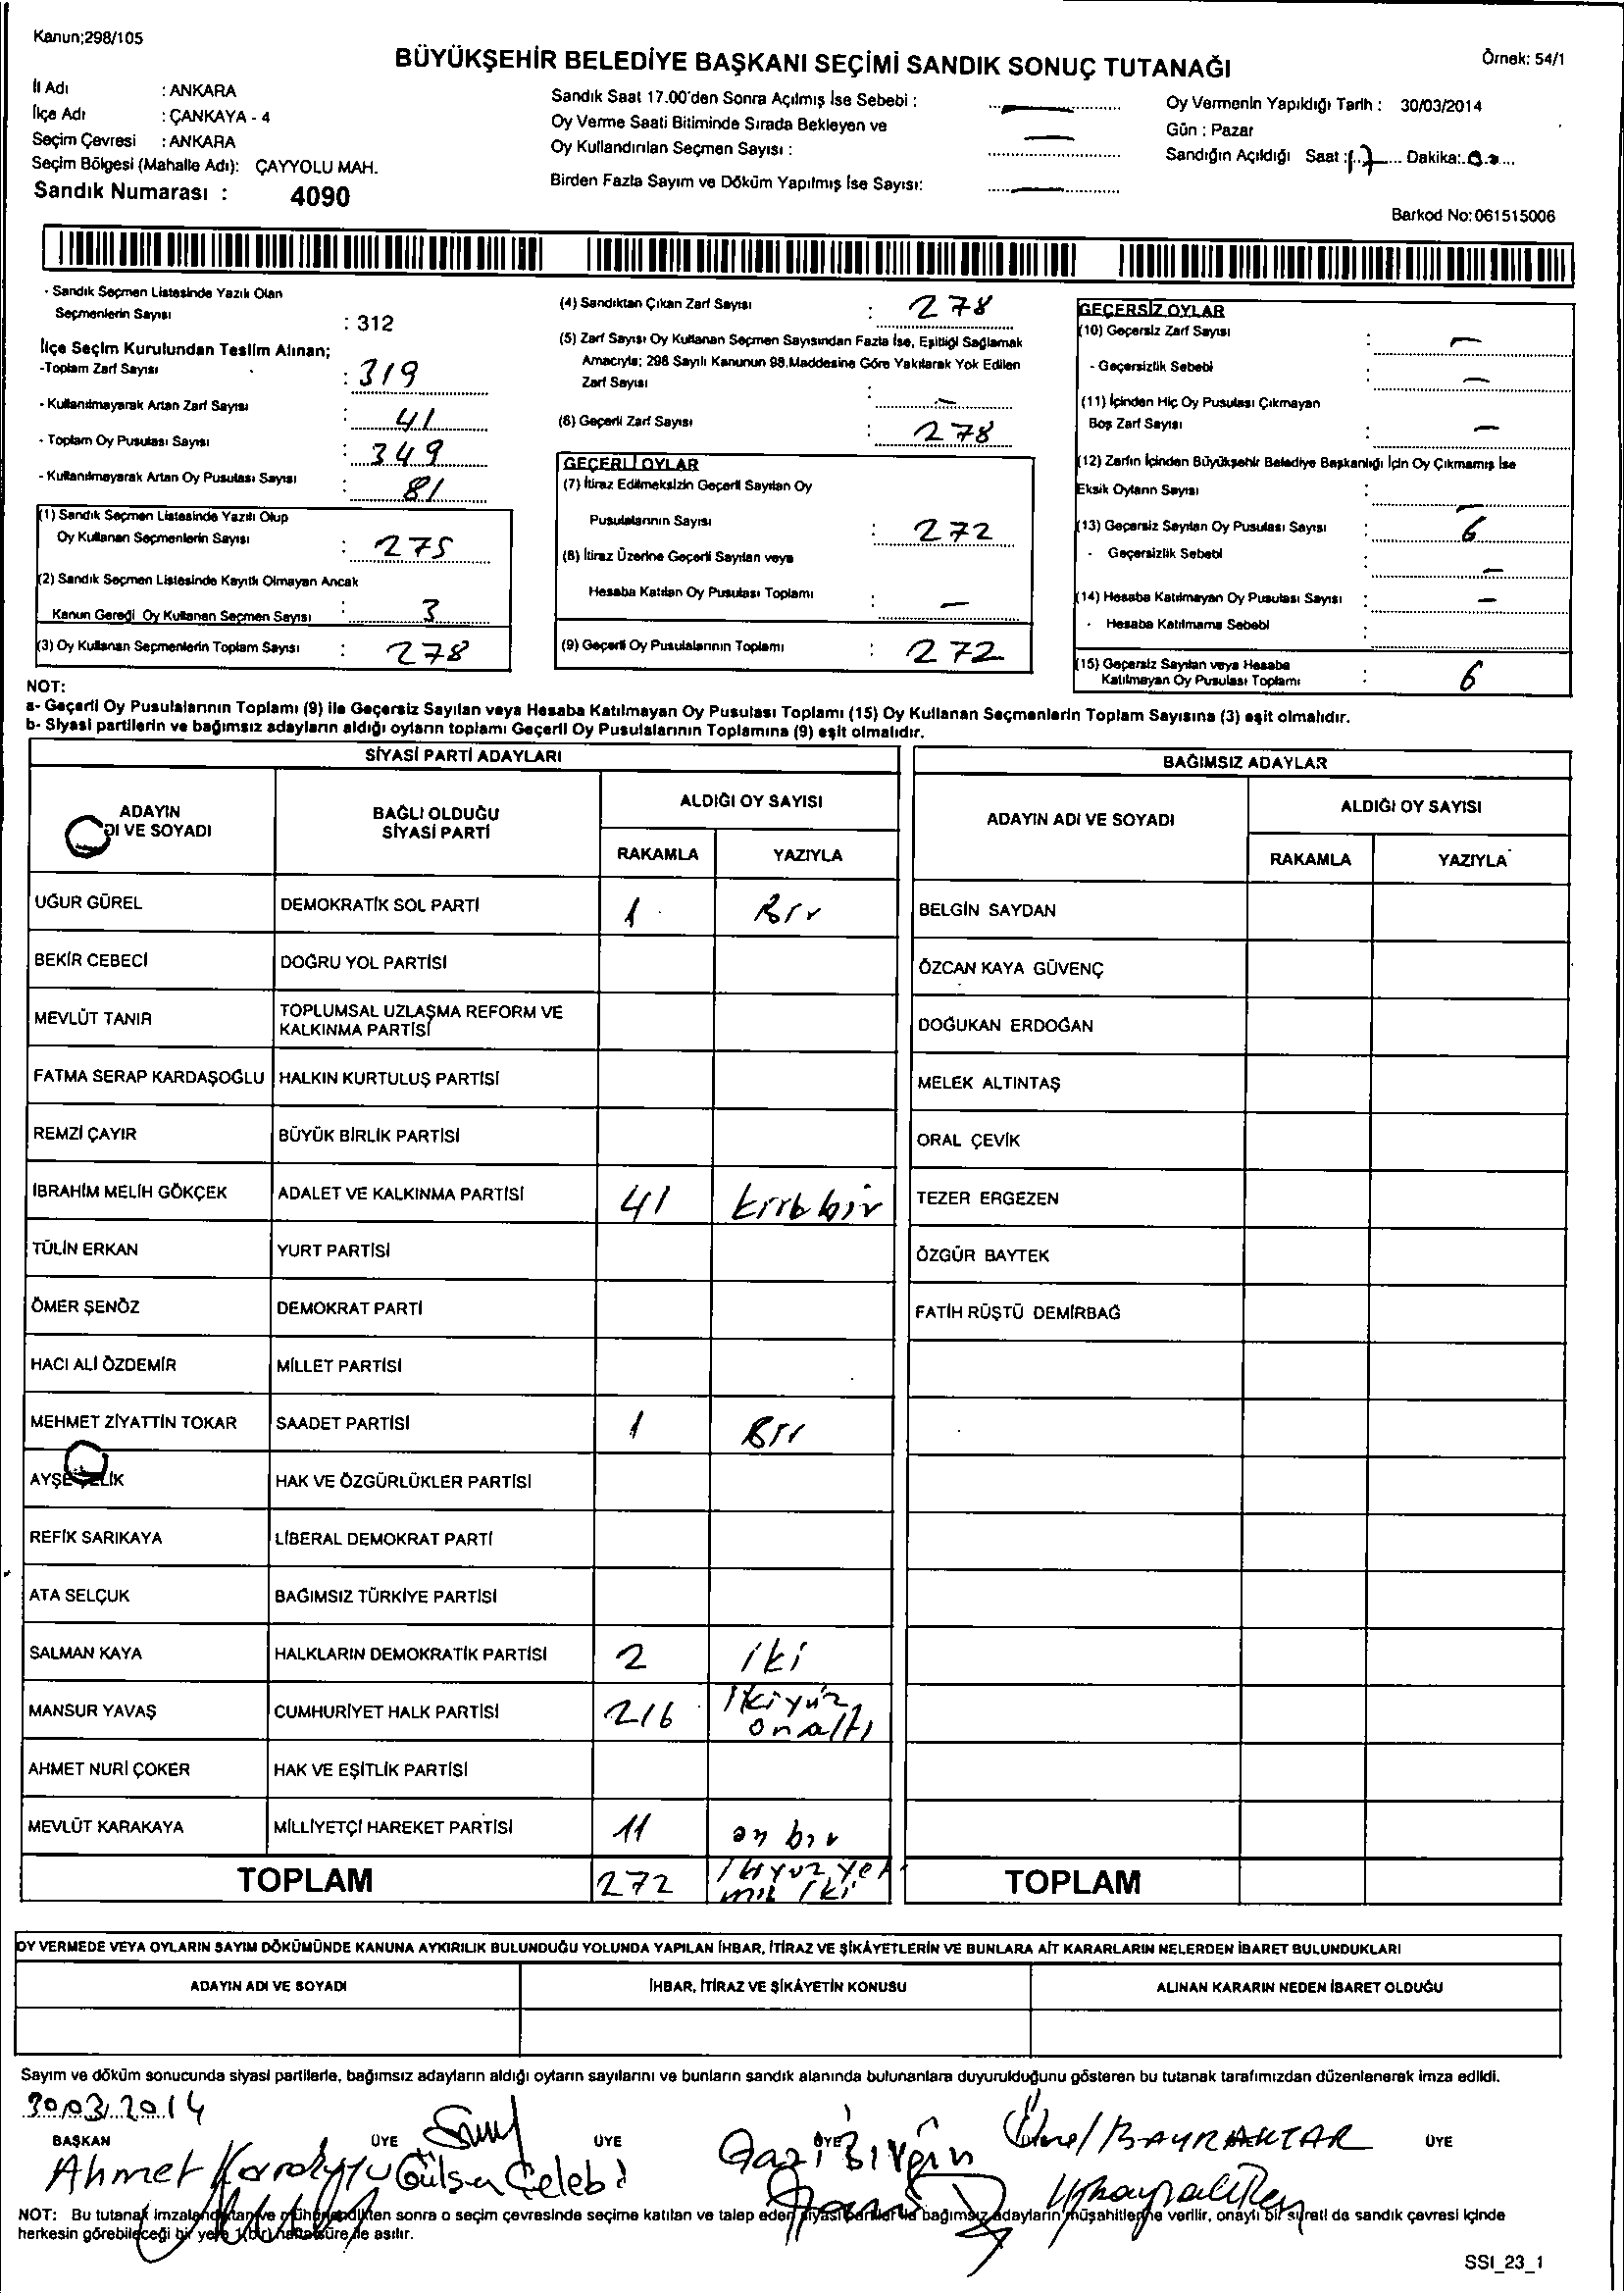 Kanun;298/105
BÜYÜKŞEHİR BELEDİYE BAŞKANI SEÇİMİ SANDIK SONUÇ TUTANAĞI
Örnek: 54/1
İl Adı : ANKARA
İlçe Adı : ÇANKAYA - 4
Seçim Çevresi : ANKARA
Seçim Bölgesi (Mahalle Adı): ÇAYYOLU MAH.
Sandık Numarası : 4090
Sandık Saat 17.00'den Sonra Açılmış İse Sebebi : —
Oy Verme Saati Bitiminde Sırada Bekleyen ve
Oy Kullandırılan Seçmen Sayısı : —
Birden Fazla Sayım ve Döküm Yapılmış İse Sayısı: —
Oy Vermenin Yapıldığı Tarih : 30/03/2014
Gün : Pazar
Sandığın Açıldığı Saat : 17 Dakika:
Barkod No:061515006
- Sandık Seçmen Listesinde Yazılı Olan
Seçmenlerin Sayısı : 312
İlçe Seçim Kurulundan Teslim Alınan;
-Toplam Zarf Sayısı : 319
- Kullanılmayarak Artan Zarf Sayısı : 41
- Toplam Oy Pusulası Sayısı : 349
- Kullanılmayarak Artan Oy Pusulası Sayısı : 81
(1) Sandık Seçmen Listesinde Yazılı Olup
Oy Kullanan Seçmenlerin Sayısı : 275
(2) Sandık Seçmen Listesinde Kayıtlı Olmayan Ancak
Kanun Gereği Oy Kullanan Seçmen Sayısı : 3
(3) Oy Kullanan Seçmenlerin Toplam Sayısı : 278
(4) Sandıktan Çıkan Zarf Sayısı : 278
(5) Zarf Sayısı Oy Kullanan Seçmen Sayısından Fazla İse, Eşitliği Sağlamak
Amacıyla; 298 Sayılı Kanunun 98.Maddesine Göre Yakılarak Yok Edilen
Zarf Sayısı : —
(6) Geçerli Zarf Sayısı : 278
GEÇERLİ OYLAR
(7) İtiraz Edilmeksizin Geçerli Sayılan Oy
Pusulalarının Sayısı : 272
(8) İtiraz Üzerine Geçerli Sayılan veya
Hesaba Katılan Oy Pusulası Toplamı : —
(9) Geçerli Oy Pusulalarının Toplamı : 272
GEÇERSİZ OYLAR
(10) Geçersiz Zarf Sayısı : —
- Geçersizlik Sebebi : —
(11) İçinden Hiç Oy Pusulası Çıkmayan
Boş Zarf Sayısı : —
(12) Zarfın İçinden Büyükşehir Belediye Başkanlığı İçin Oy Çıkmamış İse
Eksik Oyların Sayısı :
(13) Geçersiz Sayılan Oy Pusulası Sayısı : 6
- Geçersizlik Sebebi : —
(14) Hesaba Katılmayan Oy Pusulası Sayısı : —
- Hesaba Katılmama Sebebi :
(15) Geçersiz Sayılan veya Hesaba
Katılmayan Oy Pusulası Toplamı : 6
NOT:
a- Geçerli Oy Pusulalarının Toplamı (9) ile Geçersiz Sayılan veya Hesaba Katılmayan Oy Pusulası Toplamı (15) Oy Kullanan Seçmenlerin Toplam Sayısına (3) eşit olmalıdır.
b- Siyasi partilerin ve bağımsız adayların aldığı oyların toplamı Geçerli Oy Pusulalarının Toplamına (9) eşit olmalıdır.
SİYASİ PARTİ ADAYLARI
ADAYIN
DI VE SOYADI
BAĞLI OLDUĞU
SİYASİ PARTİ
ALDIĞI OY SAYISI
RAKAMLA YAZIYLA
UĞUR GÜREL DEMOKRATİK SOL PARTİ 1 Bir
BEKİR CEBECİ DOĞRU YOL PARTİSİ
MEVLÜT TANIR TOPLUMSAL UZLAŞMA REFORM VE
KALKINMA PARTİSİ
FATMA SERAP KARDAŞOĞLU HALKIN KURTULUŞ PARTİSİ
REMZİ ÇAYIR BÜYÜK BİRLİK PARTİSİ
İBRAHİM MELİH GÖKÇEK ADALET VE KALKINMA PARTİSİ 41 kırk bir
TÜLİN ERKAN YURT PARTİSİ
ÖMER ŞENÖZ DEMOKRAT PARTİ
HACI ALİ ÖZDEMİR MİLLET PARTİSİ
MEHMET ZİYATTİN TOKAR SAADET PARTİSİ 1 Bir
AYŞE ÇELİK HAK VE ÖZGÜRLÜKLER PARTİSİ
REFİK SARIKAYA LİBERAL DEMOKRAT PARTİ
ATA SELÇUK BAĞIMSIZ TÜRKİYE PARTİSİ
SALMAN KAYA HALKLARIN DEMOKRATİK PARTİSİ 2 iki
MANSUR YAVAŞ CUMHURİYET HALK PARTİSİ 216 ikiyüz
onaltı
AHMET NURİ ÇOKER HAK VE EŞİTLİK PARTİSİ
MEVLÜT KARAKAYA MİLLİYETÇİ HAREKET PARTİSİ 11 on bir
TOPLAM 272 ikiyüz yet
miş iki
BAĞIMSIZ ADAYLAR
ADAYIN ADI VE SOYADI
ALDIĞI OY SAYISI
RAKAMLA YAZIYLA
BELGİN SAYDAN
ÖZCAN KAYA GÜVENÇ
DOĞUKAN ERDOĞAN
MELEK ALTINTAŞ
ORAL ÇEVİK
TEZER ERGEZEN
ÖZGÜR BAYTEK
FATİH RÜŞTÜ DEMİRBAĞ
TOPLAM
OY VERMEDE VEYA OYLARIN SAYIM DÖKÜMÜNDE KANUNA AYKIRILIK BULUNDUĞU YOLUNDA YAPILAN İHBAR, İTİRAZ VE ŞİKÂYETLERİN VE BUNLARA AİT KARARLARIN NELERDEN İBARET BULUNDUKLARI
ADAYIN ADI VE SOYADI İHBAR, İTİRAZ VE ŞİKÂYETİN KONUSU ALINAN KARARIN NEDEN İBARET OLDUĞU
Sayım ve döküm sonucunda siyasi partilerle, bağımsız adayların aldığı oyların sayılarını ve bunların sandık alanında bulunanlara duyurulduğunu gösteren bu tutanak tarafımızdan düzenlenerek imza edildi.
30.03.2014
BAŞKAN ÜYE ÜYE ÜYE ÜYE
Ahmet Gülser Çelebi Gazi Birgin BAYRAKTAR
NOT: Bu tutanak imzalandıktan ve mühürlendikten sonra o seçim çevresinde seçime katılan ve talep eden siyasi partiler ile bağımsız adayların müşahitlerine verilir, onaylı bir sureti de sandık çevresi içinde
herkesin görebileceği bir yere 1(bir) hafta süre ile asılır.
SSI_23_1